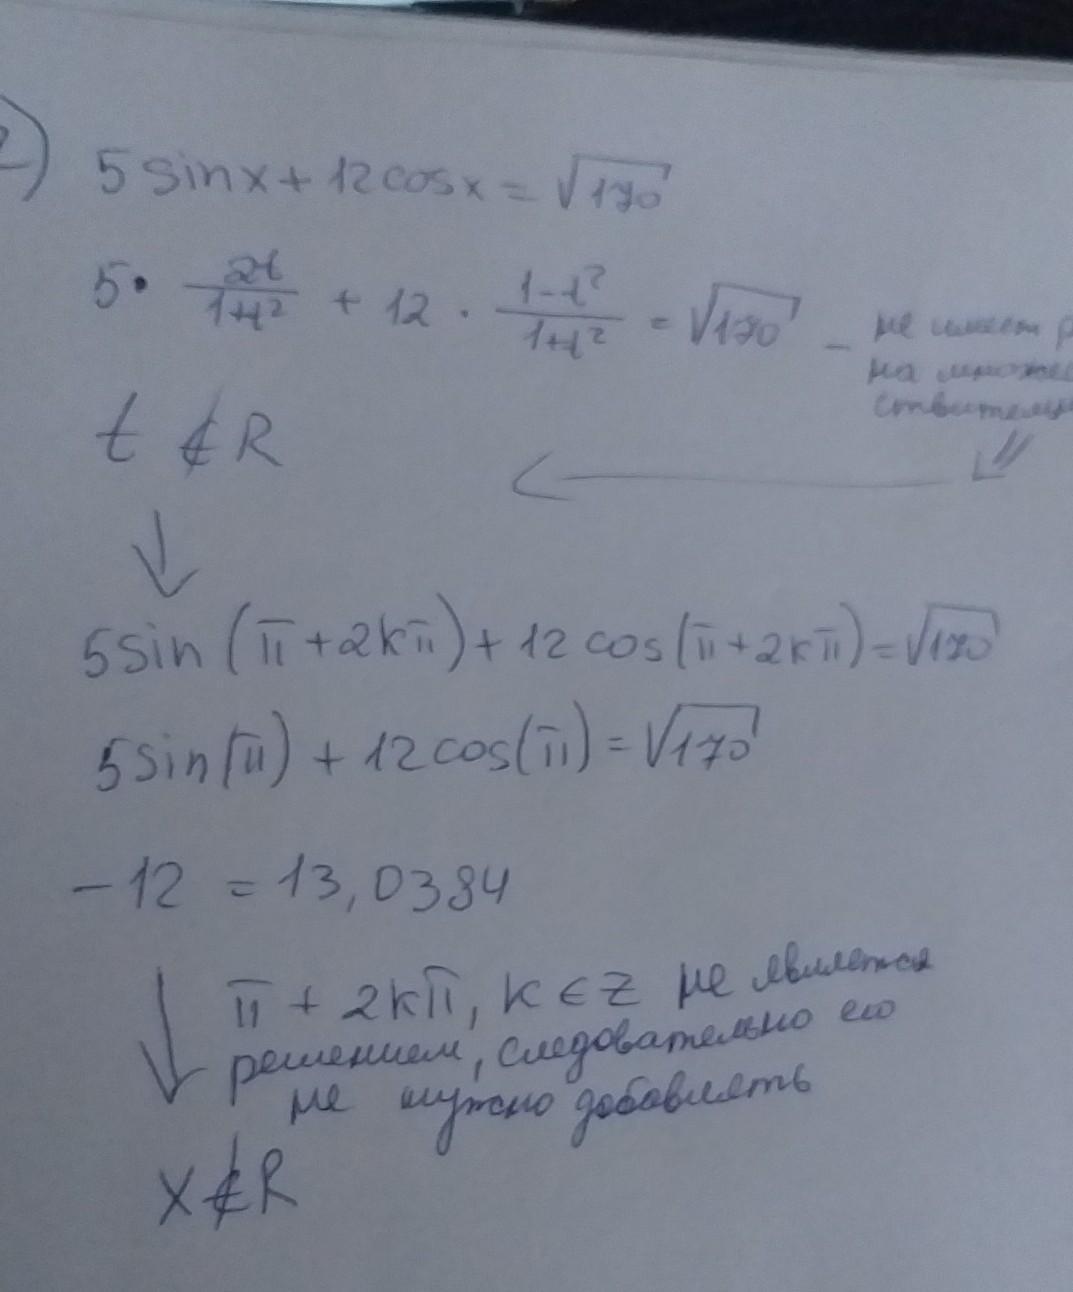 2) 5 sin x + 12 cos x = √170
5 · 2t/(1+t²) + 12 · (1-t²)/(1+t²) = √170 - не имеет
на
t ∉ R
5 sin (π + 2kπ) + 12 cos (π + 2kπ) = √170
5 sin (π) + 12 cos (π) = √170
- 12 = 13,0384
π + 2kπ, k ∈ Z не является
решением, следовательно его
не нужно добавлять
x ∉ R